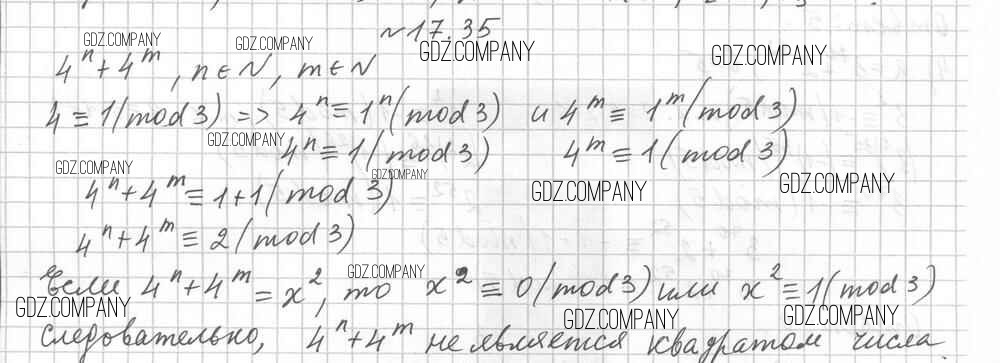 №17.35
4ⁿ+4ᵐ, n∈N, m∈N
4≡1(mod 3) => 4ⁿ≡1ⁿ(mod 3) и 4ᵐ≡1ᵐ(mod 3)
4ⁿ≡1(mod 3) 4ᵐ≡1(mod 3)
4ⁿ+4ᵐ≡1+1(mod 3)
4ⁿ+4ᵐ≡2(mod 3)
Если 4ⁿ+4ᵐ=x², то x²≡0(mod 3) или x²≡1(mod 3)
следовательно, 4ⁿ+4ᵐ не является квадратом числа
GDZ.COMPANY
GDZ.COMPANY
GDZ.COMPANY
GDZ.COMPANY
GDZ.COMPANY
GDZ.COMPANY
GDZ.COMPANY
GDZ.COMPANY
GDZ.COMPANY
GDZ.COMPANY
GDZ.COMPANY
GDZ.COMPANY
GDZ.COMPANY